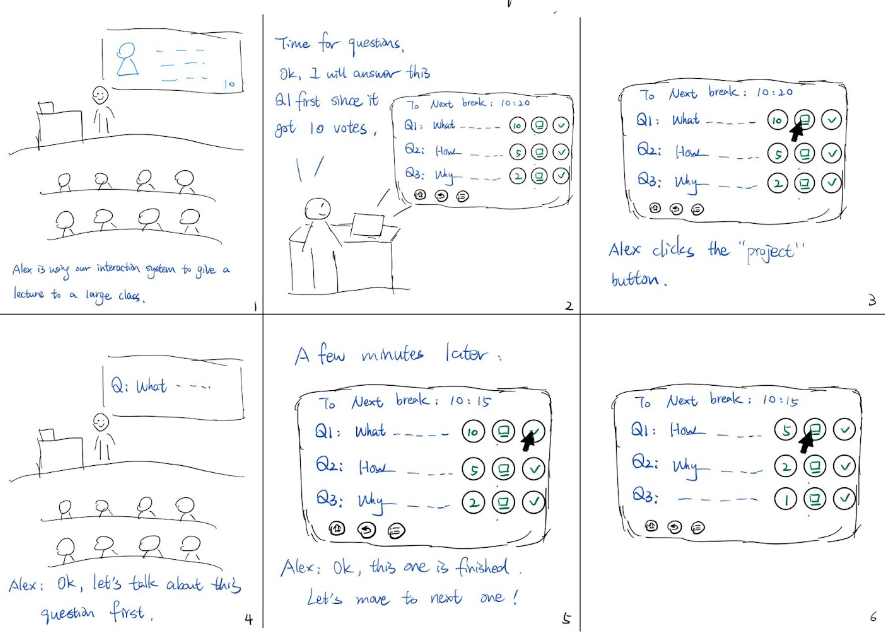 10
Alex is using our interaction system to give a
lecture to a large class.
1
Time for questions.
Ok, I will answer this
Q1 first since it
got 10 votes.
To Next break: 10:20
Q1: What ----- 10
Q2: How ---- 5
Q3: Why ---- 2
2
To Next break: 10:20
Q1: What ----- 10
Q2: How ---- 5
Q3: Why ---- 2
Alex clicks the "project"
button.
3
Q: What ----
Alex: Ok, let's talk about this
question first.
4
A few minutes later:
To Next break: 10:15
Q1: What ----- 10
Q2: How ---- 5
Q3: Why ---- 2
Alex: Ok, this one is finished.
Let's move to next one!
5
To Next break: 10:15
Q1: How ---- 5
Q2: Why ---- 2
Q3: ------ 1
6